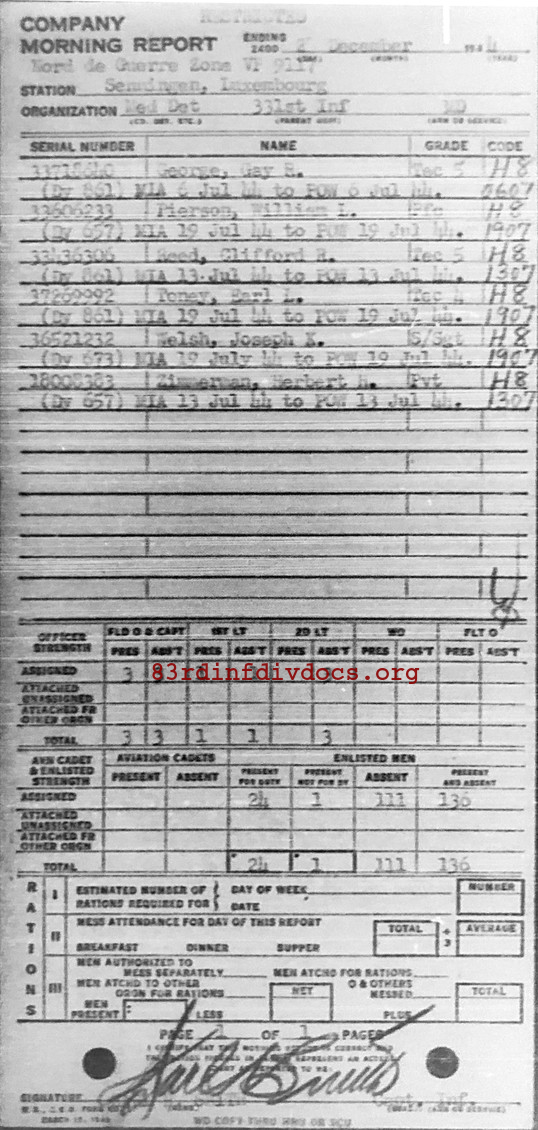 RESTRICTED
COMPANY
MORNING REPORT ENDING 2400 December 194 4
(DAY) (MONTH) (YEAR)
Nord de Guerre Zone VP 9117
STATION Senningen, Luxembourg
ORGANIZATION Med Det 331st Inf MD
(CO. DET. ETC.) (PARENT UNIT) (ARM OR SERVICE)
SERIAL NUMBER NAME GRADE CODE
33718640 George, Gay R. Tec 5 H8
(Dy 861) MIA 6 Jul 44 to POW 6 Jul 44. 0607
33606233 Pierson, William L. Pfc H8
(Dy 657) MIA 19 Jul 44 to POW 19 Jul 44. 1907
33436306 Reed, Clifford R. Tec 5 H8
(Dy 861) MIA 13 Jul 44 to POW 13 Jul 44. 1307
37269992 Toney, Earl L. Tec 4 H8
(Dy 861) MIA 19 Jul 44 to POW 19 Jul 44. 1907
36521232 Welsh, Joseph K. S/Sgt H8
(Dy 673) MIA 19 July 44 to POW 19 Jul 44. 1907
18008383 Zimmerman, Herbert H. Pvt H8
(Dy 657) MIA 13 Jul 44 to POW 13 Jul 44. 1307
OFFICER STRENGTH FLD O & CAPT 1ST LT 2D LT WO FLT O
PRES ABS'T PRES ABS'T PRES ABS'T PRES ABS'T PRES ABS'T
ASSIGNED 3
83rdinfdivdocs.org
ATTACHED UNASSIGNED
ATTACHED FR OTHER ORGN
TOTAL 3 3 1 1 3
AVN CADET & ENLISTED STRENGTH AVIATION CADETS ENLISTED MEN
PRESENT ABSENT PRESENT FOR DUTY PRESENT NOT FOR DY ABSENT PRESENT AND ABSENT
ASSIGNED 24 1 111 136
ATTACHED UNASSIGNED
ATTACHED FR OTHER ORGN
TOTAL 24 1 111 136
RATIONS
I ESTIMATED NUMBER OF RATIONS REQUIRED FOR DAY OF WEEK DATE NUMBER
II MESS ATTENDANCE FOR DAY OF THIS REPORT TOTAL ÷ 3 AVERAGE
BREAKFAST DINNER SUPPER
III MEN AUTHORIZED TO MESS SEPARATELY MEN ATCHD FOR RATIONS
MEN ATCHD TO OTHER ORGN FOR RATIONS NET O & OTHERS MESSED TOTAL
MEN PRESENT LESS PLUS
PAGE 1 OF 1 PAGES
SIGNATURE Capt. Inf.
(NAME) (GRADE) (ARM OR SERVICE)
MARCH 15, 1943
NO COPY THRU MRU OR SCU